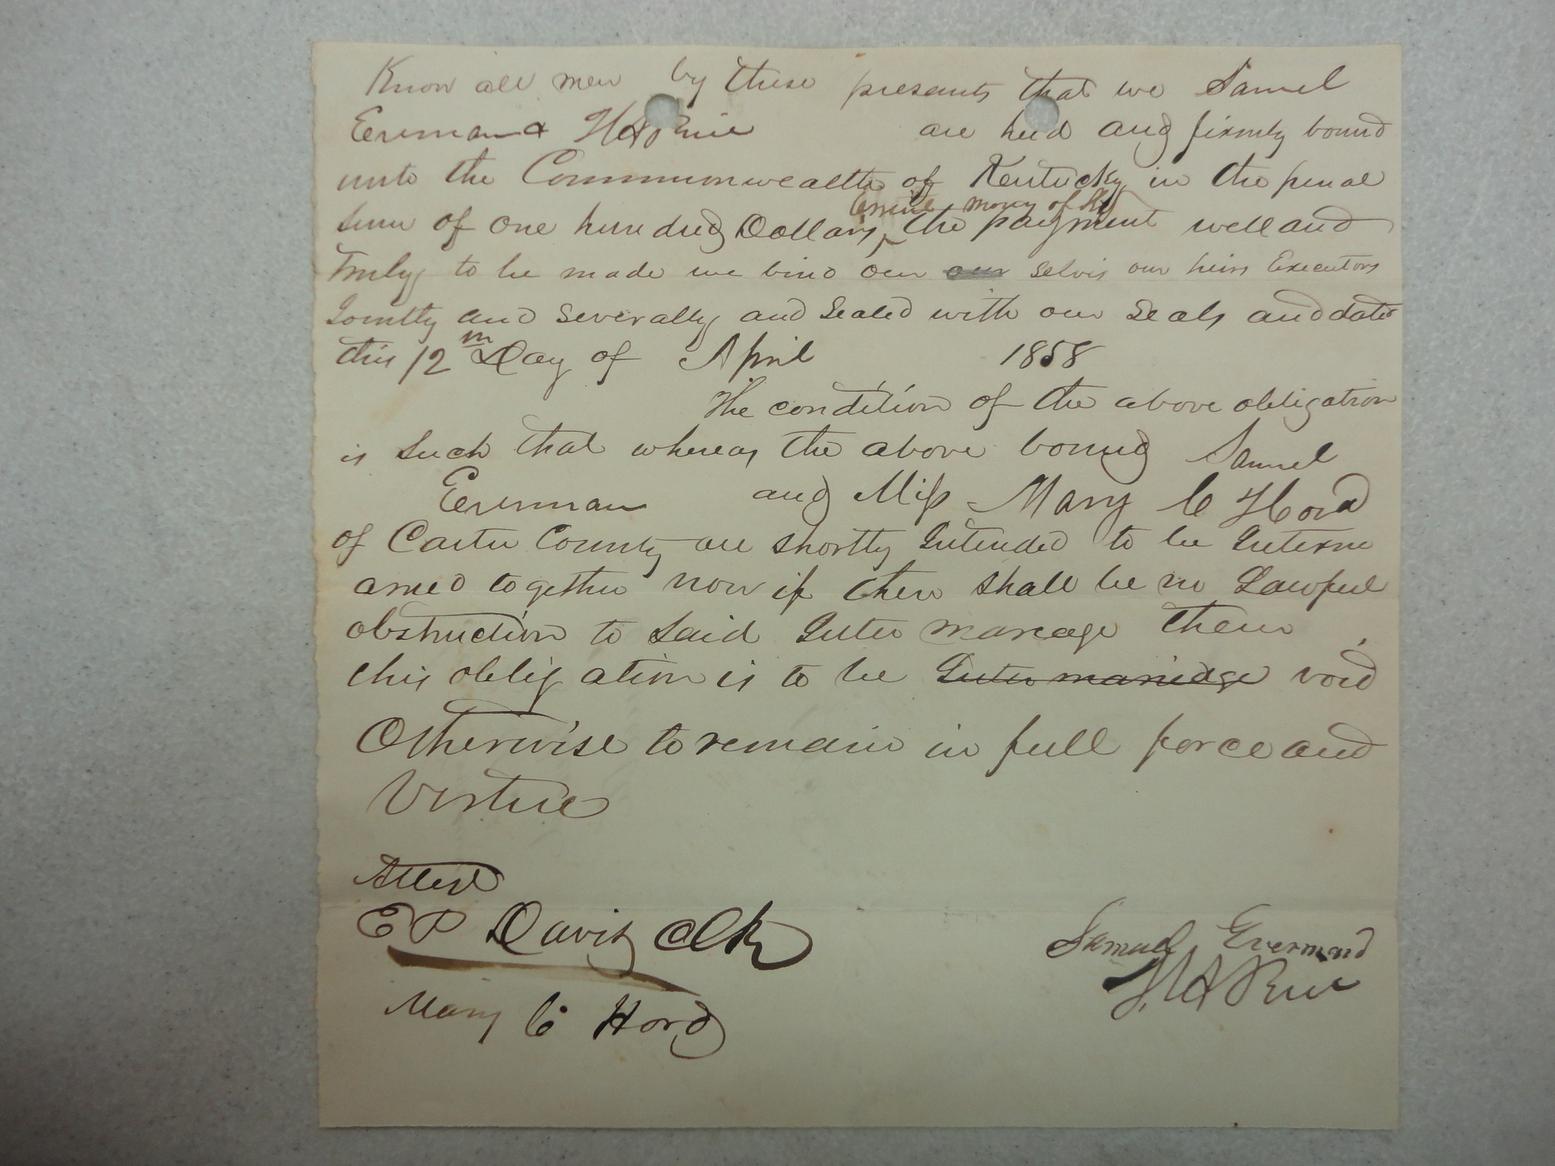 Know all men by these presants that we Samel
Everman & H A Rice are held and firmly bound
unto the Commonwealth of Kentucky in the penal
Current money of Ky
sum of one hundred Dollars, the payment well and
Truly to be made we bind our our selvis our heirs Executors
Jointly and Severally and Sealed with our Seals and dated
this 12th Day of April 1858
The condition of the above obligation
is Such that whereas the above bound Samuel
Everman and Miss Mary C Hord
of Carter County are shortly Intended to be Interm
arried together now if there shall be no Lawful
obstruction to said Inter marage then
this obligation is to be Inter mariadge void
Otherwise to remain in full force and
Virtue
Attest
E P Davis Clk
Samuel Evermand
H A Rice
Mary C Hord